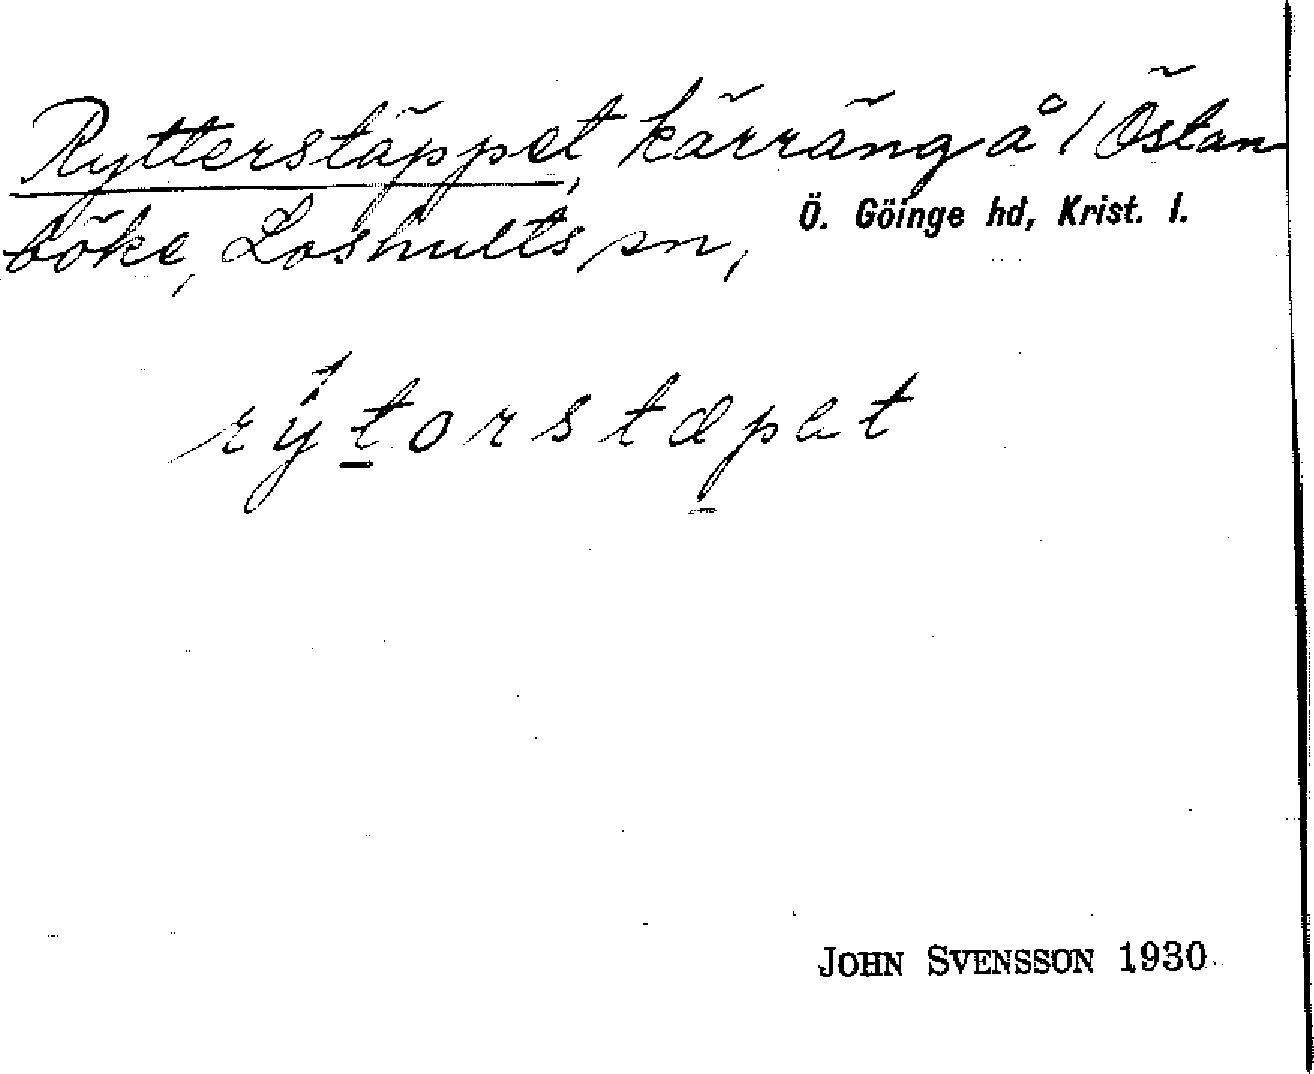 Rytterstäppet, kärräng å 1 Östan
böke, Loshults sn, Ö. Göinge hd, Krist. l.
rýtorstæpet
JOHN SVENSSON 1930